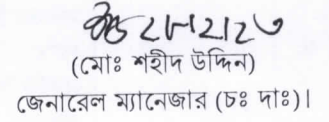 (মোঃ শহীদ উদ্দিন)
জেনারেল ম্যানেজার (চঃ দাঃ)।